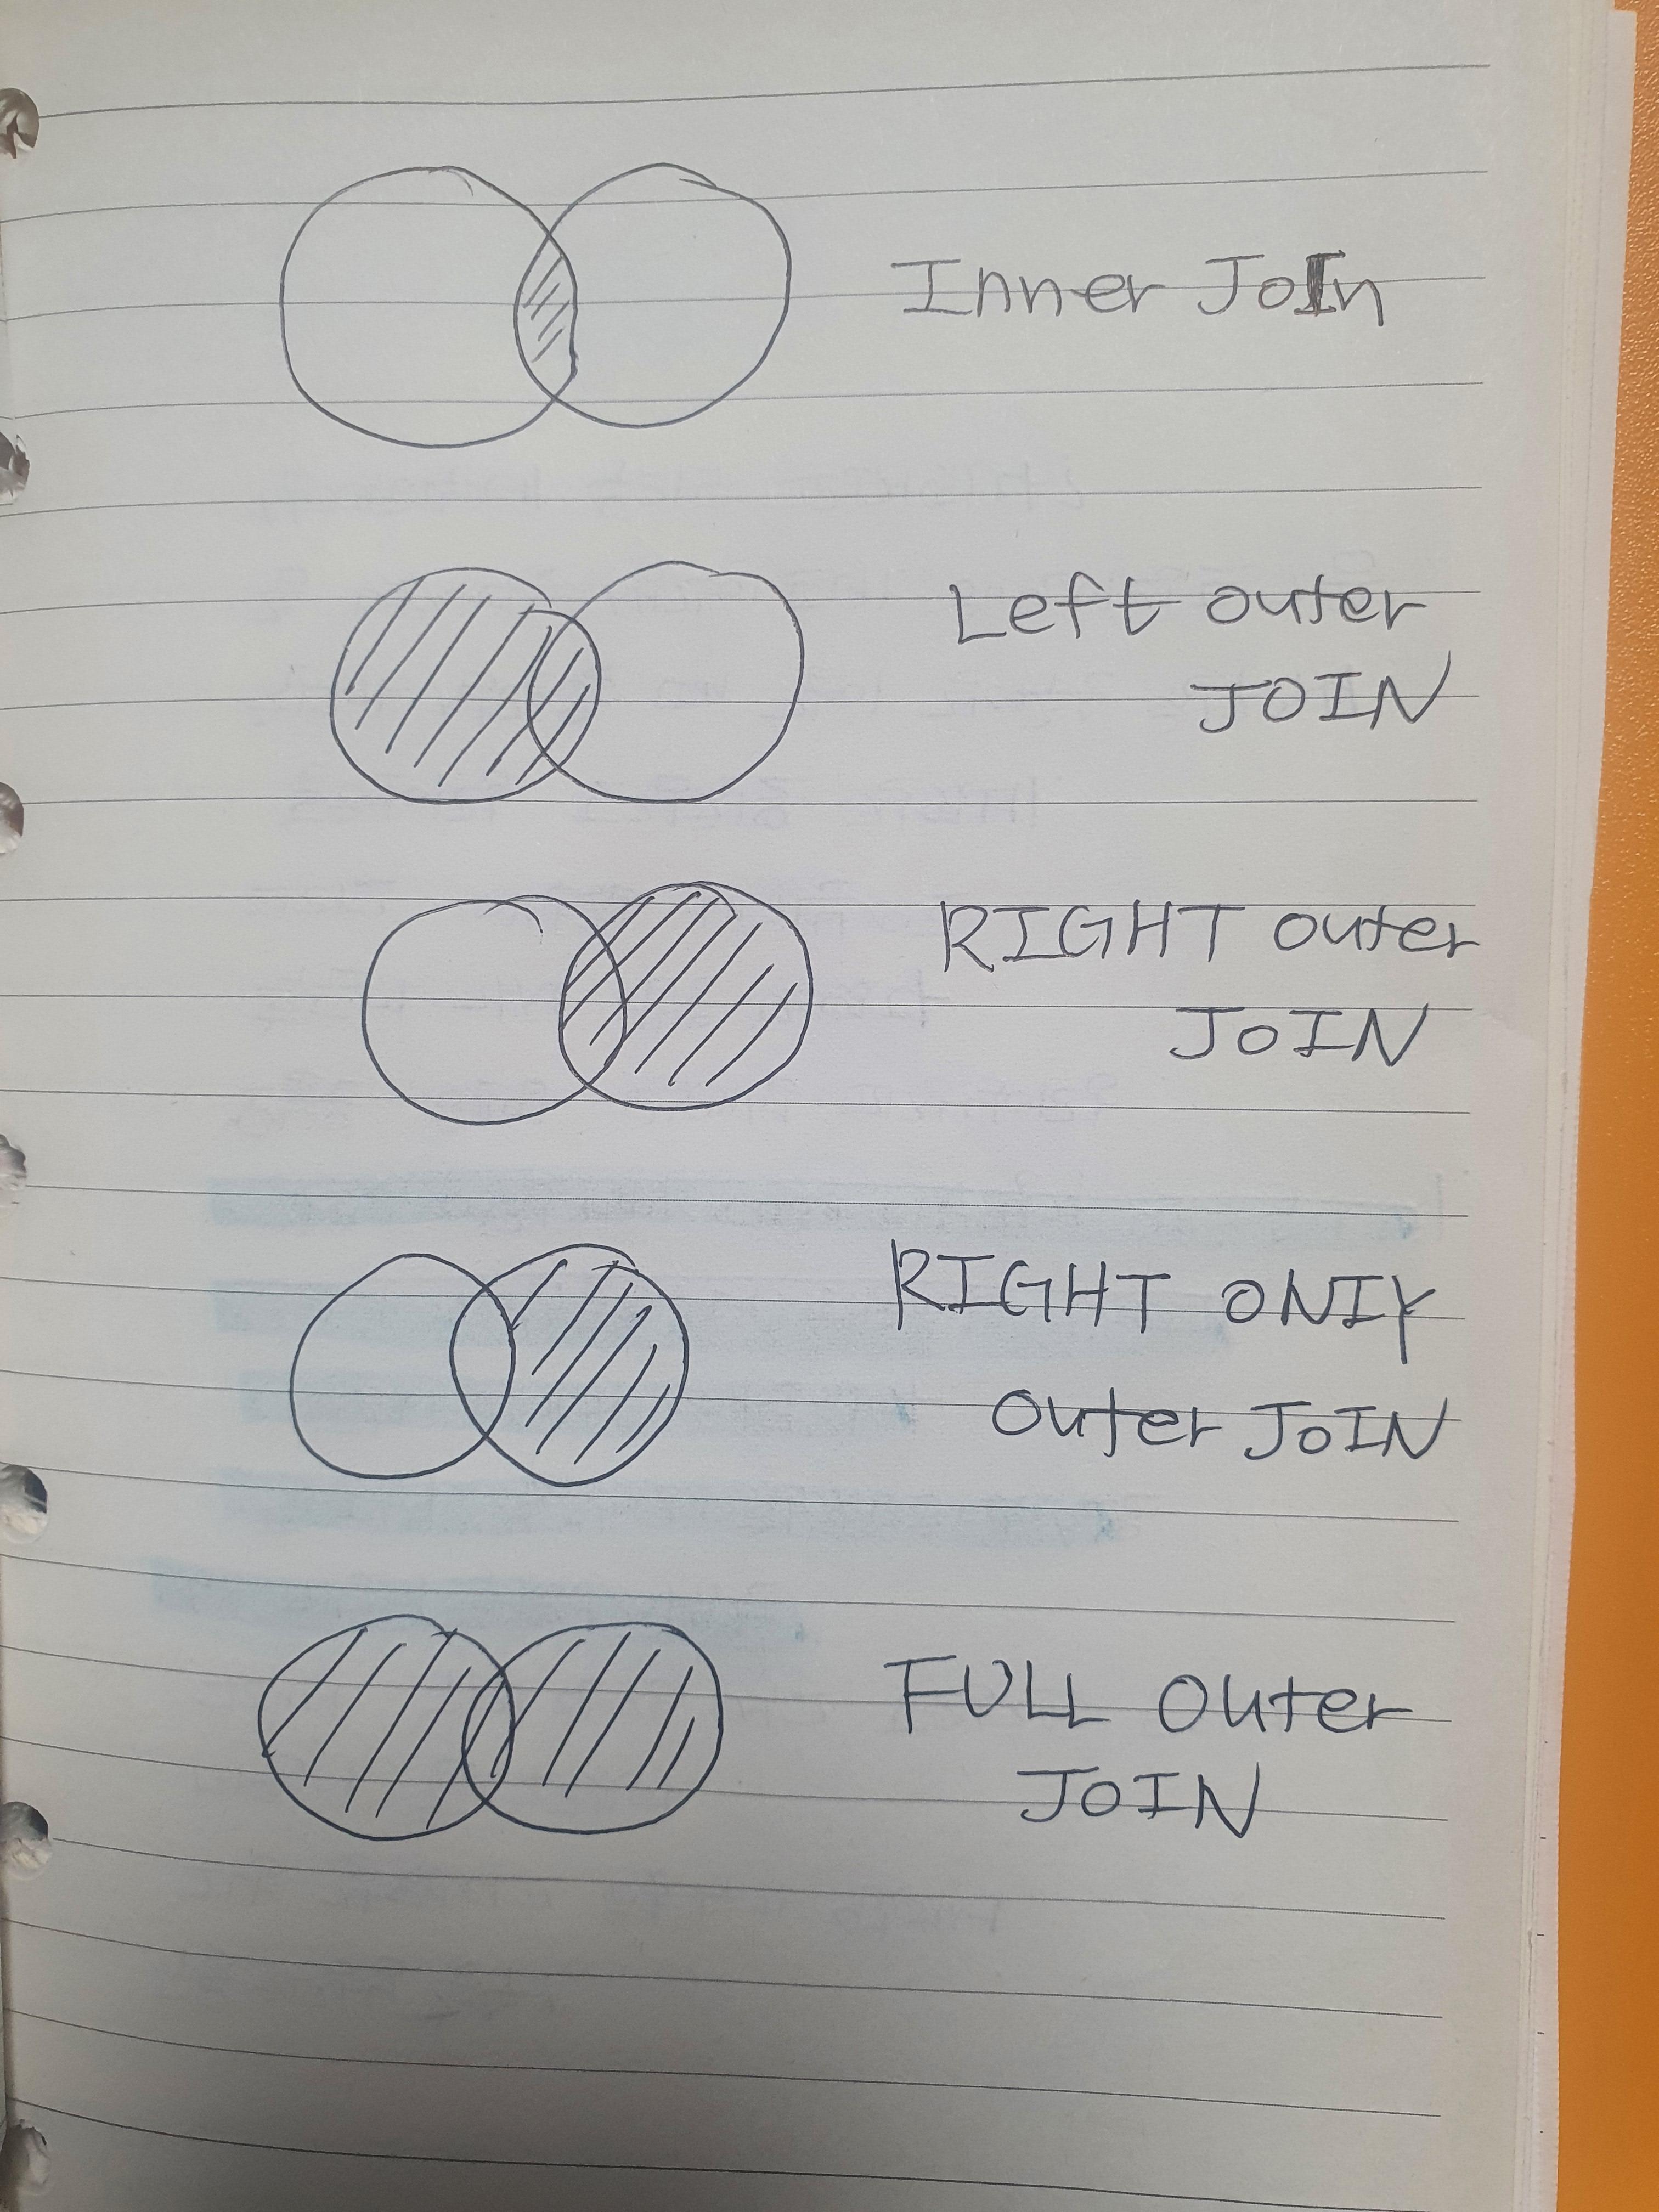 Inner JoIn
Left outer
JOIN
RIGHT outer
JOIN
RIGHT ONlY
outer JOIN
FULL outer
JOIN